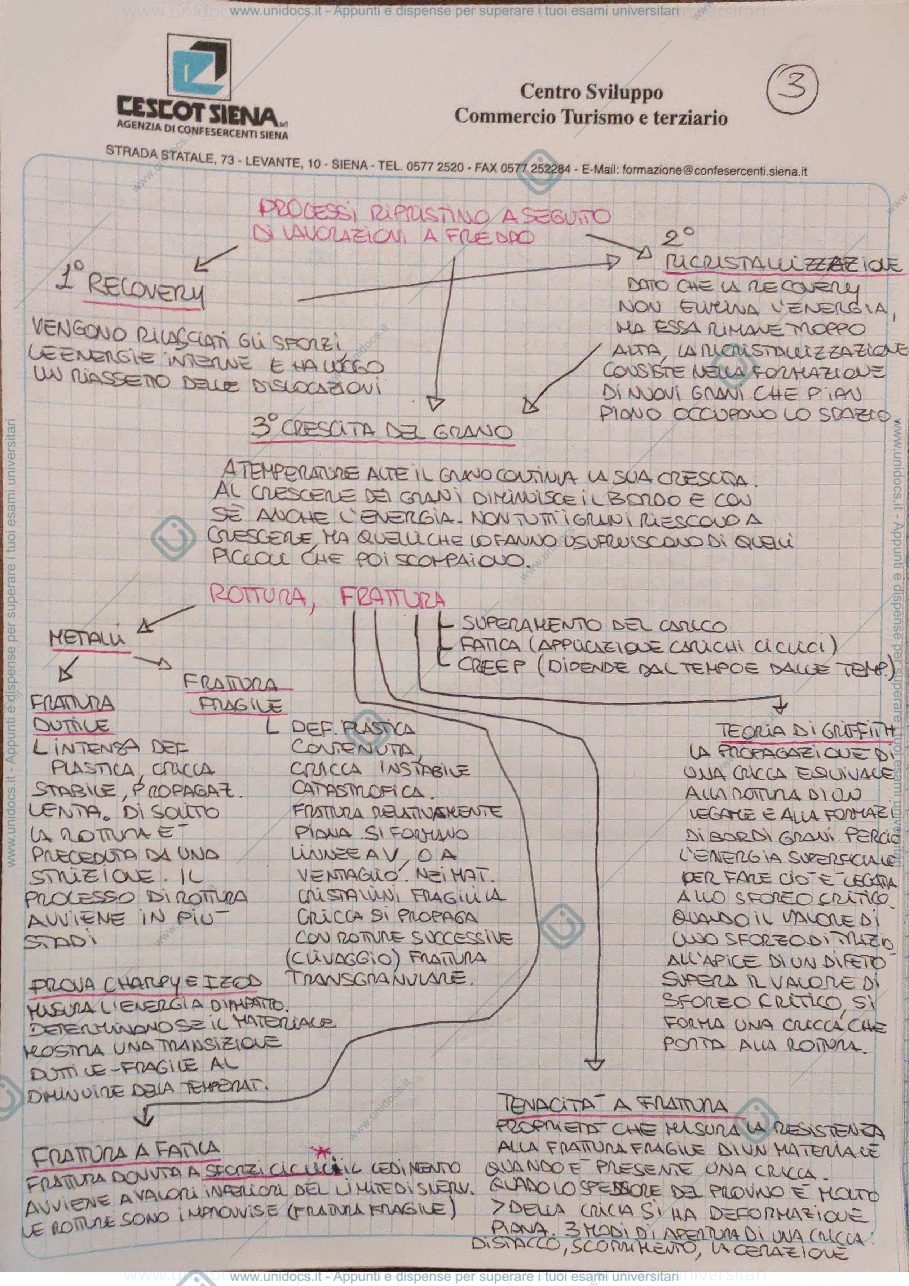 www.unidocs.it - Appunti e dispense per superare i tuoi esami universitari
CESCOT SIENA srl
AGENZIA DI CONFESERCENTI SIENA
Centro Sviluppo
Commercio Turismo e terziario
3
STRADA STATALE, 73 - LEVANTE, 10 - SIENA - TEL. 0577 2520 - FAX 0577 252284 - E-Mail: formazione@confesercenti.siena.it
PROCESSI RIPRISTINO A SEGUITO
DI LAVORAZIONI A FREDDO
1° RECOVERY
VENGONO RILASCIATI GLI SFORZI
LE ENERGIE INTERNE E HA LUOGO
UN RIASSETTO DELLE DISLOCAZIONI
2°
RICRISTALLIZZAZIONE
DATO CHE LA RECOVERY
NON ELIMINA L'ENERGIA,
MA ESSA RIMANE TROPPO
ALTA, LA RICRISTALLIZZAZIONE
CONSISTE NELLA FORMAZIONE
DI NUOVI GRANI CHE PIAN
PIANO OCCUPANO LO SPAZIO.
3° CRESCITA DEL GRANO
A TEMPERATURE ALTE IL GRANO CONTINUA LA SUA CRESCITA.
AL CRESCERE DEI GRANI DIMINUISCE IL BORDO E CON
SÈ ANCHE L'ENERGIA. NON TUTTI I GRANI RIESCONO A
CRESCERE, MA QUELLI CHE LO FANNO USUFRUISCONO DI QUELLI
PICCOLI CHE POI SCOMPAIONO.
ROTTURA, FRATTURA
SUPERAMENTO DEL CARICO
FATICA (APPLICAZIONE CARICHI CICLICI)
CREEP (DIPENDE DAL TEMPO E DALLE TEMP.)
METALLI
FRATTURA
DUTTILE
INTENSA DEF
PLASTICA, CRICCA
STABILE, PROPAGAZ.
LENTA. DI SOLITO
LA ROTTURA E'
PRECEDUTA DA UNA
STRIZIONE. IL
PROCESSO DI ROTTURA
AVVIENE IN PIU'
STADI
FRATTURA
FRAGILE
DEF. PLASTICA
CONTENUTA,
CRICCA INSTABILE
CATASTROFICA.
FRATTURA RELATIVAMENTE
PIANA SI FORMANO
LINNEE A V, O A
VENTAGLIO. NEI MAT.
CRISTALLINI FRAGILI LA
CRICCA SI PROPAGA
CON ROTTURE SUCCESSIVE
(CLIVAGGIO) FRATTURA
TRANSGRANULARE.
TEORIA DI GRIFFITH
LA PROPAGAZIONE DI
UNA CRICCA EQUIVALE
ALLA ROTTURA DI UN
LEGAME E ALLA FORMAZI
DI BORDI GRANI. PERCIÒ
L'ENERGIA SUPERFICIALE
PER FARE CIO' E' LEGATA
ALLO SFORZO CRITICO.
QUANDO IL VALORE DI
UNO SFORZO DI TRAZIO
ALL'APICE DI UN DIFETO
SUPERA IL VALORE DI
SFORZO CRITICO, SI
FORMA UNA CRICCA CHE
PORTA ALLA ROTTURA.
PROVA CHARPY E IZOD
MISURA L'ENERGIA D'IMPATTO.
DETERMINANO SE IL MATERIALE
MOSTRA UNA TRANSIZIONE
DUTTILE-FRAGILE AL
DIMINUIRE DELLA TEMPERAT.
FRATTURA A FATICA
FRATTURA DOVUTA A SFORZI CICLICI* IL CEDIMENTO
AVVIENE A VALORI INFERIORI DEL LIMITE DI SNERV.
LE ROTTURE SONO IMPROVVISE (FRATTURA FRAGILE)
TENACITA' A FRATTURA
PROPRIETA' CHE MISURA LA RESISTENZA
ALLA FRATTURA FRAGILE DI UN MATERIALE
QUANDO E' PRESENTE UNA CRICCA.
QUADO LO SPESSORE DEL PROVINO E' MOLTO
> DELLA CRICCA SI HA DEFORMAZIONE
PIANA. 3 MODI DI APERTURA DI UNA CRICCA:
DISTACCO, SCORRIMENTO, LACERAZIONE
www.unidocs.it - Appunti e dispense per superare i tuoi esami universitari